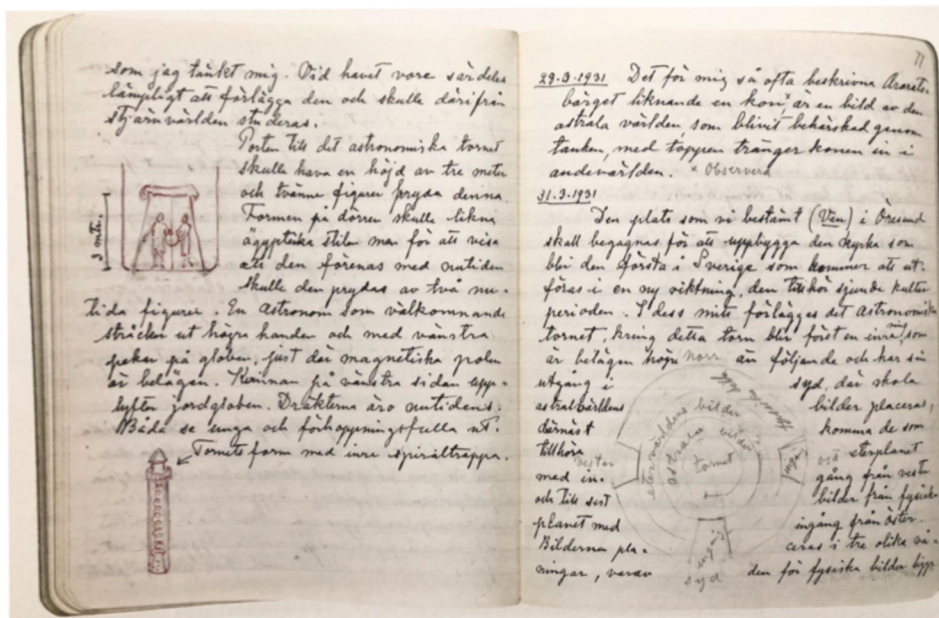 som jag tänkt mig. Vid havet vore särdeles
lämpligt att förlägga den och skulle därifrån
stjärnvärlden studeras.
Porten till det astronomiska tornet
skulle hava en höjd av tre meter
och tvänne figurer pryda denna.
Formen på dörren skulle likna
ägyptiska stilen men för att visa
att den förenas med nutiden
skulle den prydas av två nu-
tida figurer. En astronom som välkomnande
sträcker ut högra handen och med vänstra
pekar på globen, just där magnetiska polen
är belägen. Kvinnan på vänstra sidan upp-
lyfter jordgloben. Dräkterna äro nutidens.
Båda se unga och förhoppningsfulla ut.
3 mtr.
Tornets form med inre spiraltrappa.
29.3.1931 Det för mig så ofta beskrivna Ararats-
bärget liknande en kon, × är en bild av den
astrala världen, som blivit behärskad genom
tanken, med toppen tränger konen in i
andevärlden. × Observera
31.3.1931
Den plats som vi bestämt (Ven) i Öresund
skall begagnas för att uppbygga den kyrka som
blir den första i Sverige som kommer att ut-
föras i en ny riktning, den tillhör sjunde kultur
perioden. I dess mitt förlägges det astronomiska
tornet, kring detta torn blir först en inre som
är belägen högre än följande och har sin
utgång i syd, där skola
astralvärldens bilder placeras,
därnäst komma de som
tillhöra eterplanet
med in- gång från väster
och till sist bilder från fysiska
planet med ingång från öster.
Bilderna pla- ceras i tre olika vå-
ningar, varav den för fysiska bilder ligger
norr
etervärldens bilder
astralas bilder
tornet
väster
ingång
ingång
syd